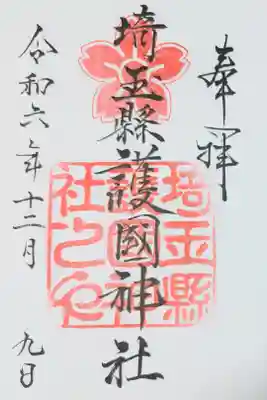 奉拝
埼玉縣護國神社
令和六年十二月九日
埼玉縣
護國神
社之印